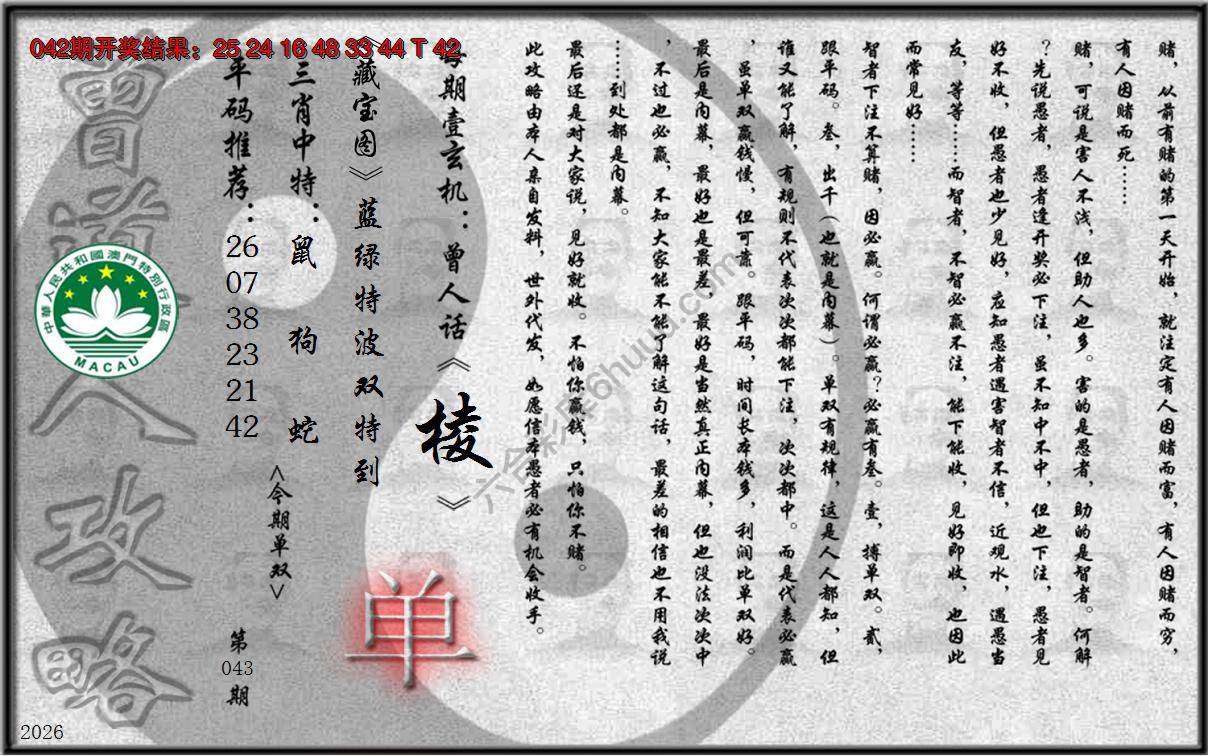 042期开奖结果：25 24 16 48 33 44 T 42
赌，从前有赌的第一天开始，就注定有人因赌而富，有人因赌而穷，
有人因赌而死……
赌，可说是害人不浅，但助人也多。害的是愚者，助的是智者。何解
？先说愚者，愚者逢开奖必下注，虽不知中不中，但也下注，愚者见
好不收，但愚者也少见好，应知愚者遇害智者不信，近观水，遇愚当
友，等等……而智者，不智必赢不注，能下能收，见好即收，也因此
而常见好……
智者下注不算赌，因必赢。何谓必赢？必赢有叁。壹，搏单双。贰，
跟平码。叁，出千（也就是内幕）。单双有规律，这是人人都知，但
谁又能了解，有规则不代表次次都能下注，次次都中。而是代表必赢
，虽单双赢钱慢，但可靠。跟平码，时间长本钱多，利润比单双好。
最后是内幕，最好也是最差，最好是当然真正内幕，但也没法次次中
，不过也必赢，不知大家能不能了解这句话，最差的相信也不用我说
……到处都是内幕。
最后还是对大家说，见好就收。不怕你赢钱，只怕你不赌。
此攻略由本人亲自发料，世外代发，如愿信本愚者必有机会收手。
每期壹玄机：曾人话《棱》
《藏宝图》蓝绿特波双特到
三肖中特：鼠 狗 蛇
平码推荐：26 07 38 23 21 42
<今期单双>
单
第043期
曾道人攻略
中華人民共和國澳門特別行政區
MACAU
六合彩库6huuu.com
2026